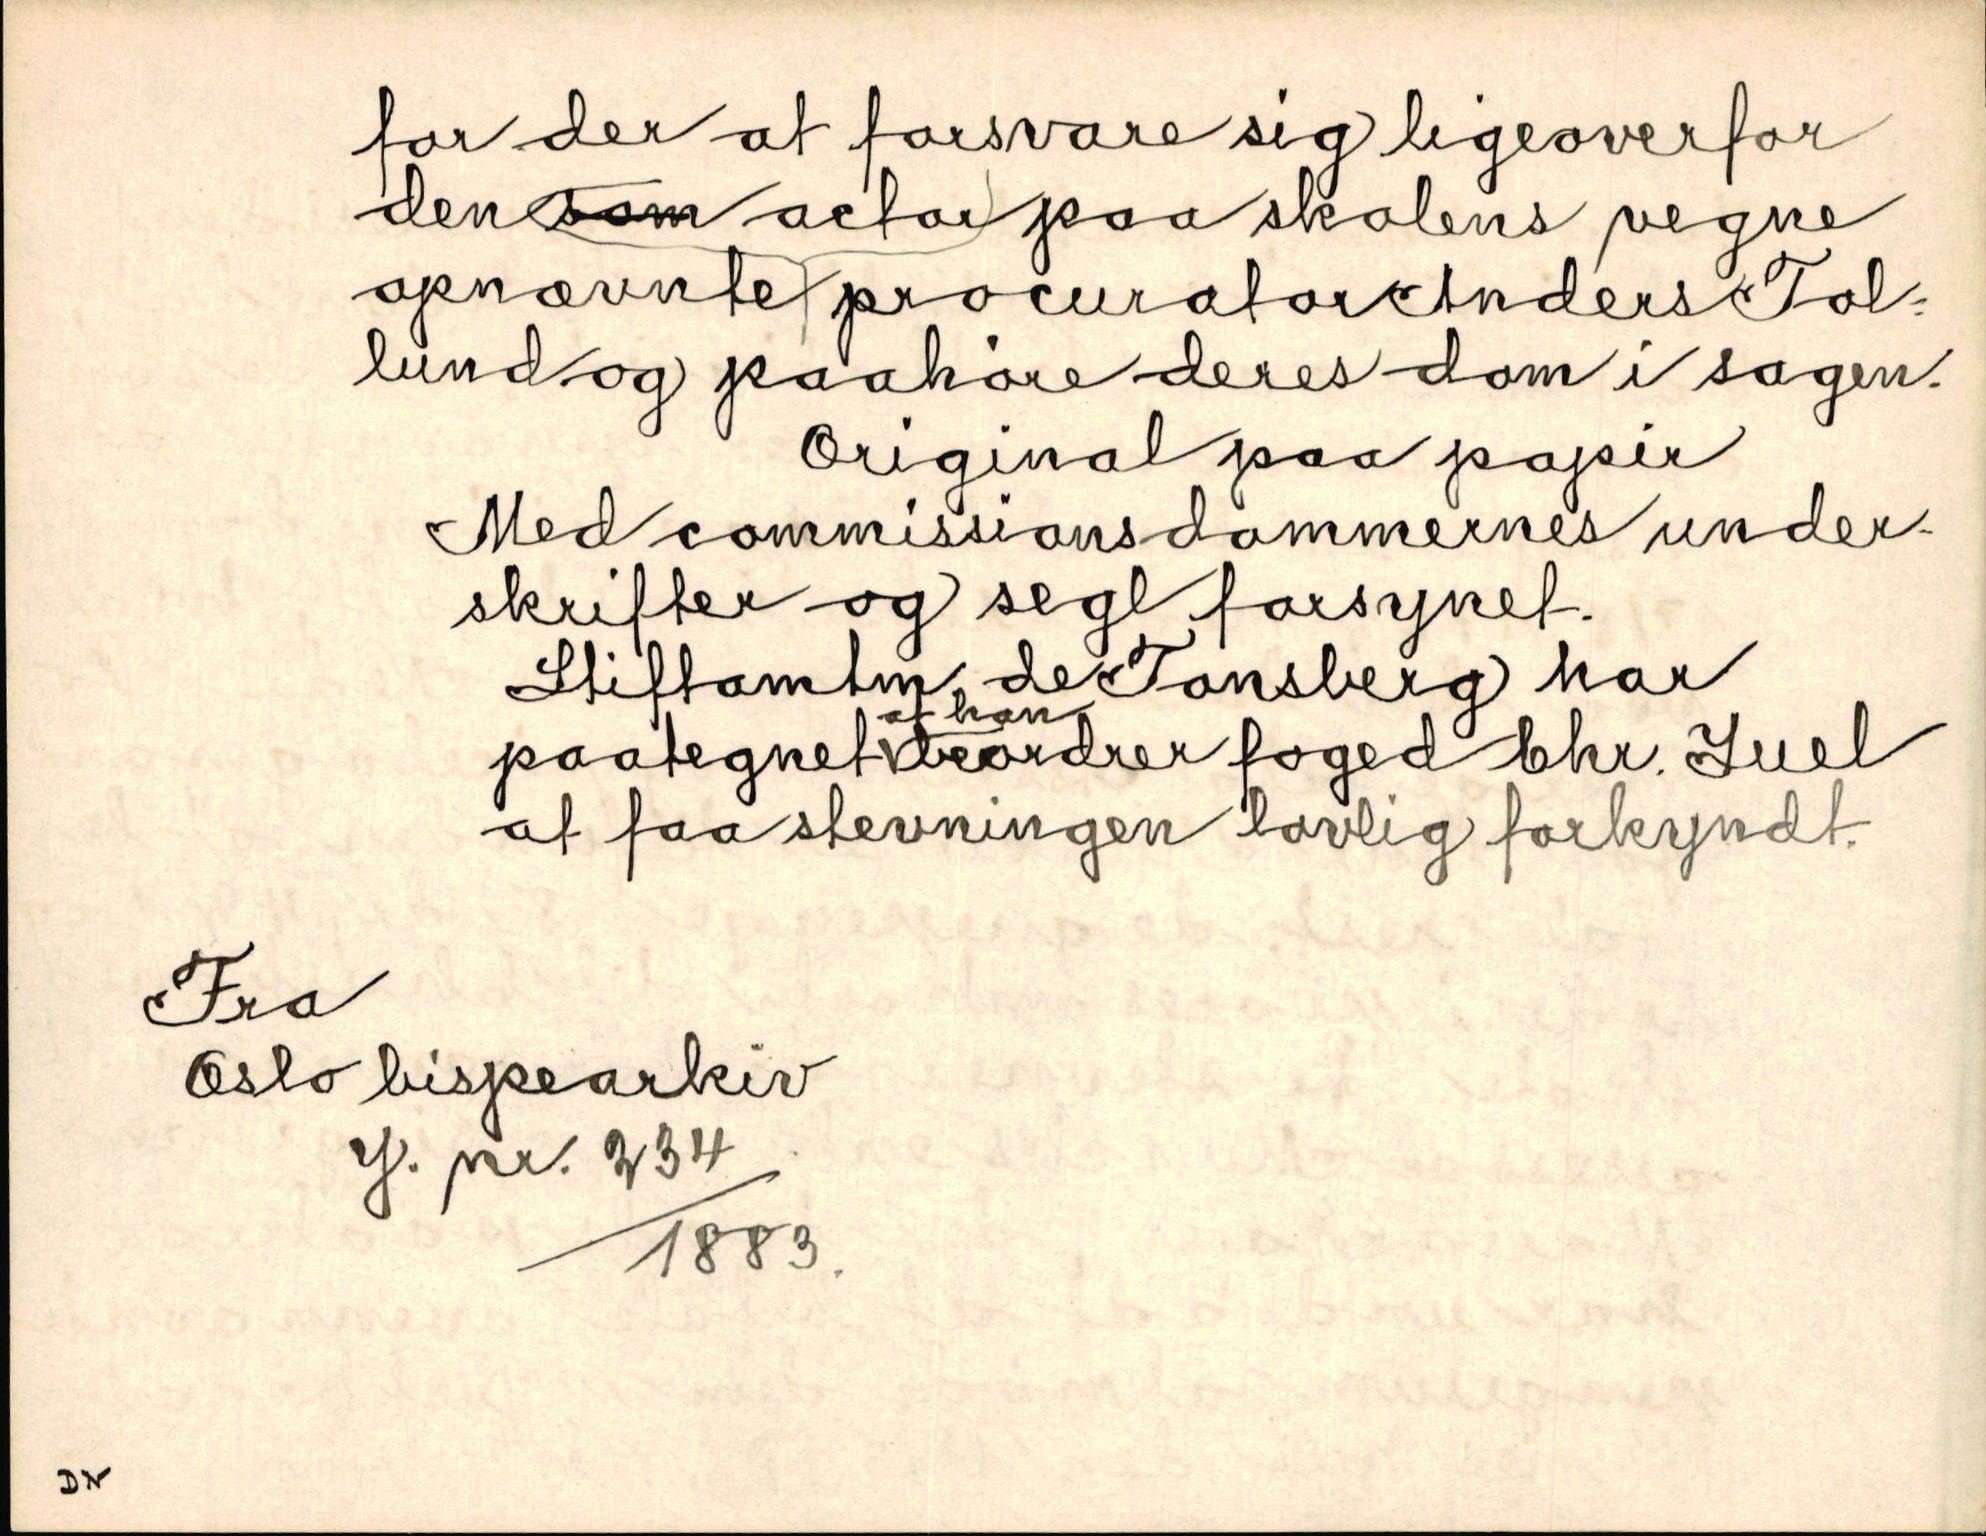 for der at forsvare sig ligeoverfor
den som actor paa skolens vegne
opnævnte procurator Anders Tol-
lund og paahöre deres dom i sagen.
Original paa papir
Med commissionsdommernes under-
skrifter og segl forsynet.
Stiftamtm, de Tonsberg har
at han
paategnet beordrer foged Chr. Juel
at faa stevningen lovlig forkyndt.
Fra
Oslo bispearkiv
J. nr. 234
/1883.
DN